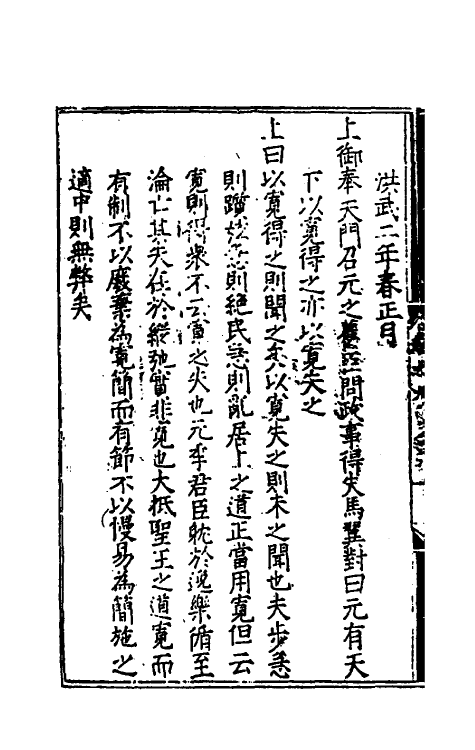 洪武二年春正月
上御奉天門召元之舊臣問政事得失馬翼對曰元有天
下以寬得之亦以寬失之
上曰以寬得之則聞之矣以寬失之則未之聞也夫步急
則躓弦急則絕民急則亂居上之道正當用寬但云
寬則得眾不云寬之失也元季君臣耽於逸樂循至
淪亡其失在於縱弛當非寬也大抵聖王之道寬而
有制不以廢棄為寬簡而有節不以慢易為簡施之
適中則無弊矣